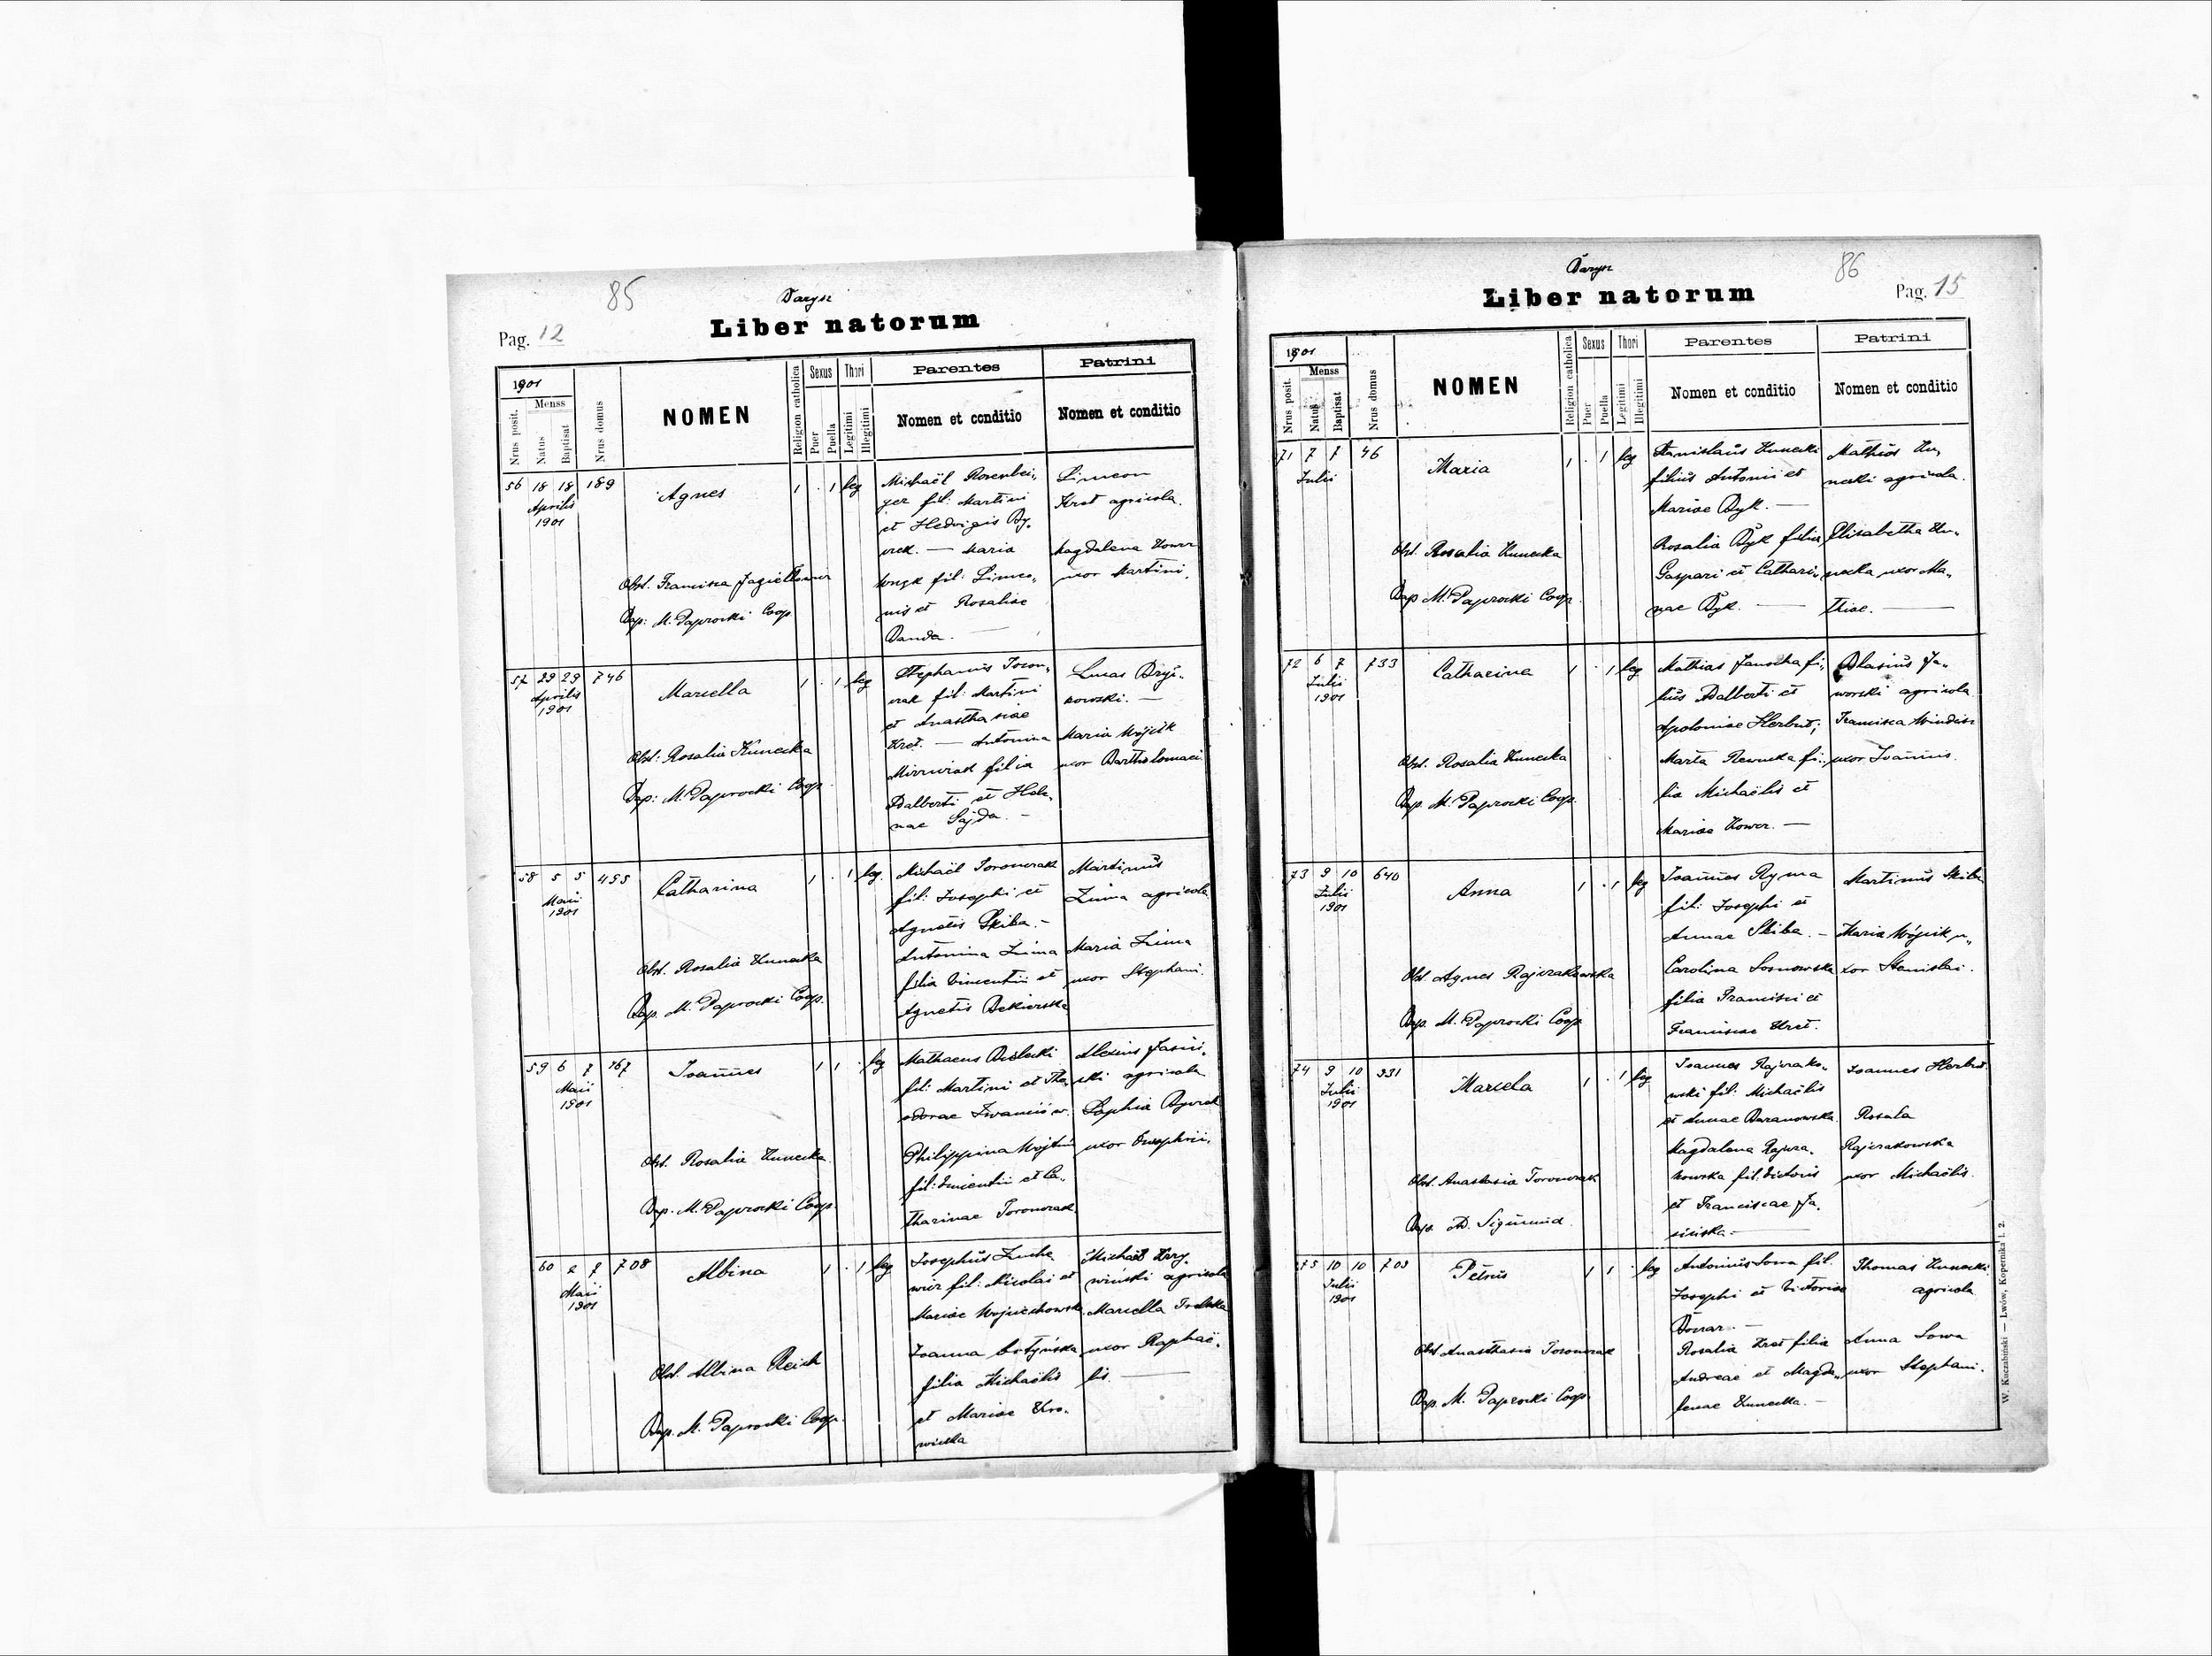 85
Barysz
Liber natorum
Pag. 12
1901
Menss
Nrus posit.
Natus
Baptisat
Nrus domus
NOMEN
Religion catholica
Sexus
Puer
Puella
Thori
Legitimi
Illegitimi
Parentes
Nomen et conditio
Patrini
Nomen et conditio
56 18 18 189
Aprilis
1901
Agnes
1 . 1 leg
Obst. Francisca
Bap: M. Paprocki Coop.
Michaël Rosenbei-
ger fil: Martini
et Hedvigis By-
czek. — Maria
fil: Simeo-
nis et Rosaliae
Banda. —
Simeon
Kret agricola.
Magdalena Kower
uxor Martini.
57 29 29 746
Aprilis
1901
Marcella
1 . 1 leg
Obst: Rosalia Kunecka
Bap: M. Paprocki Coop.
Stephanus Toron-
czak fil: Martini
et Anasthasiae
Kret. — Antonina
filia
Adalberti et Hele-
nae Sajda. —
Lucas Bryj-
kowski. —
Maria Wójcik
uxor Bartholomaei.
58 5 5 455
Maii
1901
Catharina
1 . 1 leg.
Obst. Rosalia Kunecka
Bap. M. Paprocki Coop.
Michaël Toronczak
fil: Josephi et
Agnetis Skiba. —
Antonina Zima
filia Vincentii et
Agnetis Bekierska
Martinus
Zima agricola
Maria Zima
uxor Stephani.
59 6 7 167
Maii
1901
Joannes
1 1 . leg
Obst. Rosalia Kunecka.
Bap. M. Paprocki Coop.
Mathaeus Bielecki
fil: Martini et The-
odorae Iwanciów.
Philippina
fil: Vincentii et Ca-
tharinae Toronczak.
Alexius Jasiń-
ski agricola
Sophia Byczek
uxor Onuphrii.
60 2 7 708
Maii
1901
Albina
1 . 1 leg
Obst. Albina Reich
Bap. M. Paprocki Coop.
Josephus
fil: Nicolai et
Mariae Wojciechowska.
Joanna
filia Michaëlis
et Mariae Kro-
wicka
Michaël Krzy-
wiński agricola
Marcella
uxor Raphaë-
lis. —
86
Barysz
Liber natorum
Pag. 15
1901
Menss
Nrus posit.
Natus
Baptisat
Nrus domus
NOMEN
Religion catholica
Sexus
Puer
Puella
Thori
Legitimi
Illegitimi
Parentes
Nomen et conditio
Patrini
Nomen et conditio
71 7 7 46
Julii
Maria
1 . 1 leg
Obst. Rosalia Kunecka
Bap M. Paprocki Coop.
Stanislaus Kunecki
filius Antonii et
Mariae Byk. —
Rosalia Byk filia
Gaspari et Cathari-
nae Byk. —
Mathias Ku-
necki agricola.
Elisabetha Ku-
necka uxor Ma-
thiae. —
72 6 7 733
Julii
1901
Catharina
1 . 1 leg
Obst. Rosalia Kunecka
Bap. M. Paprocki Coop.
Mathias Janocha fi-
lius Adalberti et
Apoloniae Herbut;
Marta fi-
lia Michaëlis et
Mariae Kower. —
Blasius Ja-
worski agricola
Francisca
uxor Joannis.
73 9 10 640
Julii
1901
Anna
1 . 1 leg
Obst Agnes Rajczakowska
Bap. M. Paprocki Coop
Joannes Ryma
fil: Josephi et
Annae Skiba. —
Carolina Sosnowska
filia Francisci et
Franciscae Kret.
Martinus Skiba
Maria Wójcik u-
xor Stanislai.
74 9 10 331
Julii
1901
Marcela
1 . 1 leg
Obst. Anastasia Toronczak
Bap. Ad. Sigmund.
Joannes Rajczako-
wski fil: Michaëlis
et Annae Baranowska.
Magdalena Rajcza-
kowska fil. Victoris
et Franciscae Ja-
sińska. —
Joannes Herbut.
Rosalia
Rajczakowska
uxor Michaëlis.
75 10 10 703
Julii
1901
Petrus
1 1 . leg
Obst Anasthasia Toronczak
Bap. M. Paprocki Coop
Antonius Sowa fil.
Josephi et Victoriae
Rosalia Kret filia
Andreae et Magda-
lenae Kunecka. —
Thomas Kunecki
agricola
Anna Sowa
uxor Stephani.
W. Kuczabiński — Lwów, Kopernika l. 2.